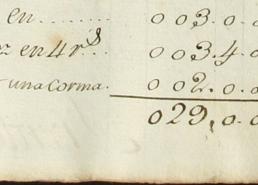 en........ 003.0.0
z en 4 r.s 003.4.0
una Corma. 002.0.0
029.0.0